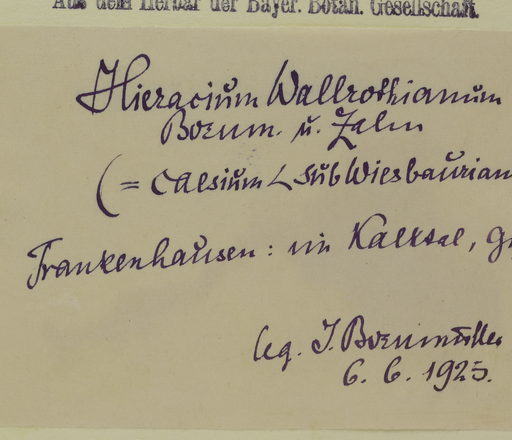 Aus dem Herbar der Bayer. Botan. Gesellschaft.
Hieracium Wallrothianum
Bornm. u. Zahn
(= caesium < subWiesbaurian
Frankenhausen: im Kalktal, G
leg. J. Bornmüller
6. 6. 1925.